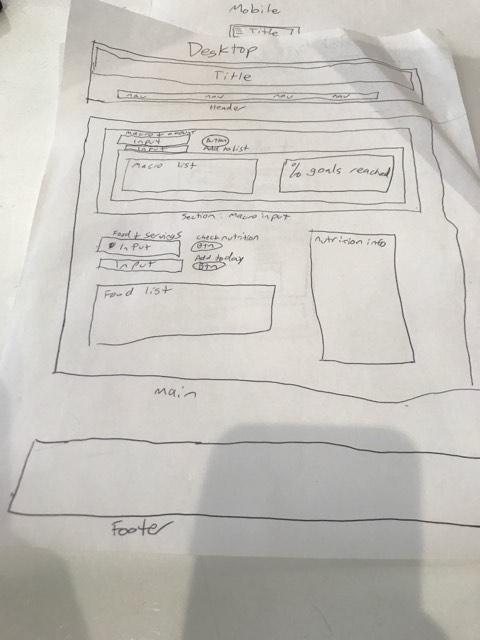 Mobile
Title
Desktop
Title
nav nav nav nav
Header
macro + amount
Input
Button
Input
Add to list
Macro list
% goals reached
Section: Macro input
Food + servings
check nutrition
Input
Btn
Add today
Input
Btn
nutrision info
Food list
Main
Footer